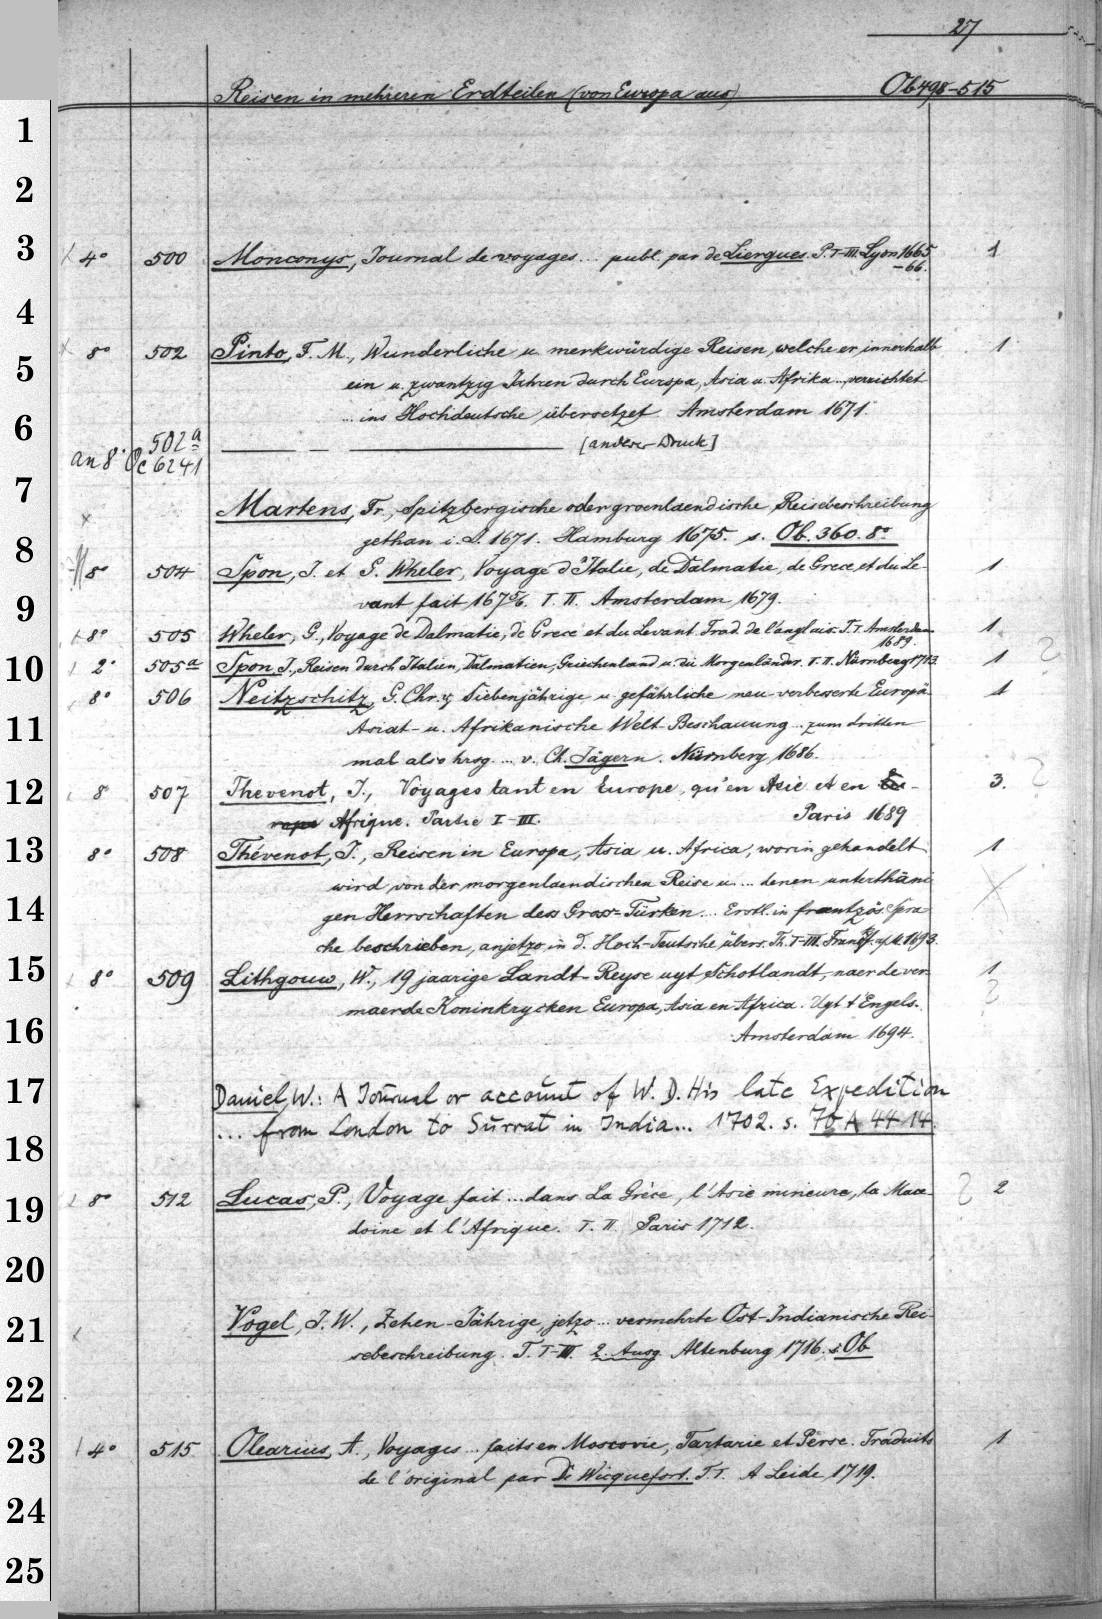 27
Reisen in mehreren Erdteilen (von Europa aus) Ob 498-515
1
2
3
4° 500 Monconys, Journal de voyages ... publ. par de Liergues. P. I-III. Lyon 1665 1
-66.
4
8° 502 Pinto, F. M., Wunderliche u. merkwürdige Reisen, welche er innerhalb 1
5
ein u. zwantzig Jahren durch Europa, Asia u. Afrika ... verrichtet
... ins Hochdeutsche übersetzet Amsterdam 1671.
6
502a
an 8° Oc 6241 — — — [anderer Druck]
7
Martens, Fr., Spitzbergische oder groenlaendische Reisebeschreibung
gethan i. J. 1671. Hamburg 1675. s. Ob. 360. 8°
8
8° 504 Spon, J. et G. Wheler, Voyage d'Italie, de Dalmatie, de Grece, et du Le- 1
vant fait 1675/6. T. II. Amsterdam 1679.
9
8° 505 Wheler, G., Voyage de Dalmatie, de Grece et du Levant. Trad. de l'anglais. T. I. Amsterdam 1
1689.
10
2° 505a Spon J., Reisen durch Italien, Dalmatien, Griechenland u. die Morgenländer. T. II. Nürnberg 1713. 1
8° 506 Neitzschitz, G. Chr. v., Siebenjährige u. gefährliche neu-verbesserte Europä- 1
11
Asiat- u. Afrikanische Welt-Beschauung ... zum dritten
mal also hrsg. ... v. Ch. Jägern. Nürnberg 1686.
12
8° 507 Thevenot, J., Voyages tant en Europe, qu'en Asie et en Eu- 3.
rope Afrique. Partie I-III. Paris 1689
13
8° 508 Thévenot, J., Reisen in Europa, Asia u. Africa, worin gehandelt 1
wird von der morgenlaendischen Reise u. ... denen unterthäni
14
gen Herrschaften dess Gross-Türken ... Erstl. in frantzös. Spra
che beschrieben, anjetzo in d. Hoch-Teutsche übers. Th. I-III. Franckf. a/M. 1693.
15
8° 509 Lithgouw, W., 19 jaarige Landt-Reyse uyt Schotlandt, naer de ver- 1
maerde Koninkrycken Europa, Asia en Africa. Uyt t Engels.
16
Amsterdam 1694.
17
Daniel, W.: A Journal or account of W. D. His late Expedition
... from London to Surrat in India... 1702. s. 70 A 44 14.
18
19
8° 512 Lucas, P., Voyage fait ... dans La Grèce, l'Asie mineure, la Mace- 2
doine et l'Afrique. T. II Paris 1712.
20
21
Vogel, J. W., Zehen-Jährige, jetzo ... vermehrte Ost-Indianische Rei-
sebeschreibung. T. I-III. 2. Ausg. Altenburg 1716. s. Ob
22
23
4° 515 Olearius, A., Voyages ... faits en Moscovie, Tartarie et Perse. Traduits 1
de l'original par De Wicquefort. T. I. A Leide 1719.
24
25